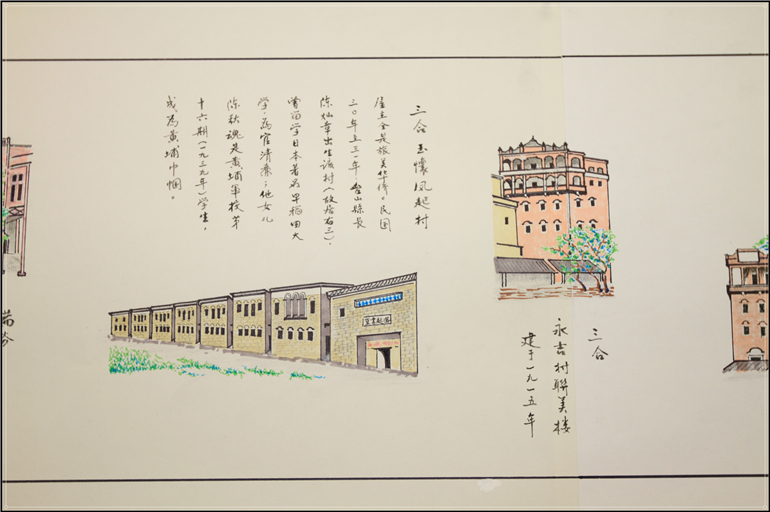 三合
永吉村聯美楼
建于一九一五年
三合玉懷凤起村
屋主全是旅美华侨。民国
三〇年至三一年台山縣長
陈灿章出生该村(故居右三),
曾留学日本著名早稻田大
学,为官清廉;他女儿
陈秋魂是黄埔军校第
十六期(一九三九年)学生,
成为黄埔巾帼。